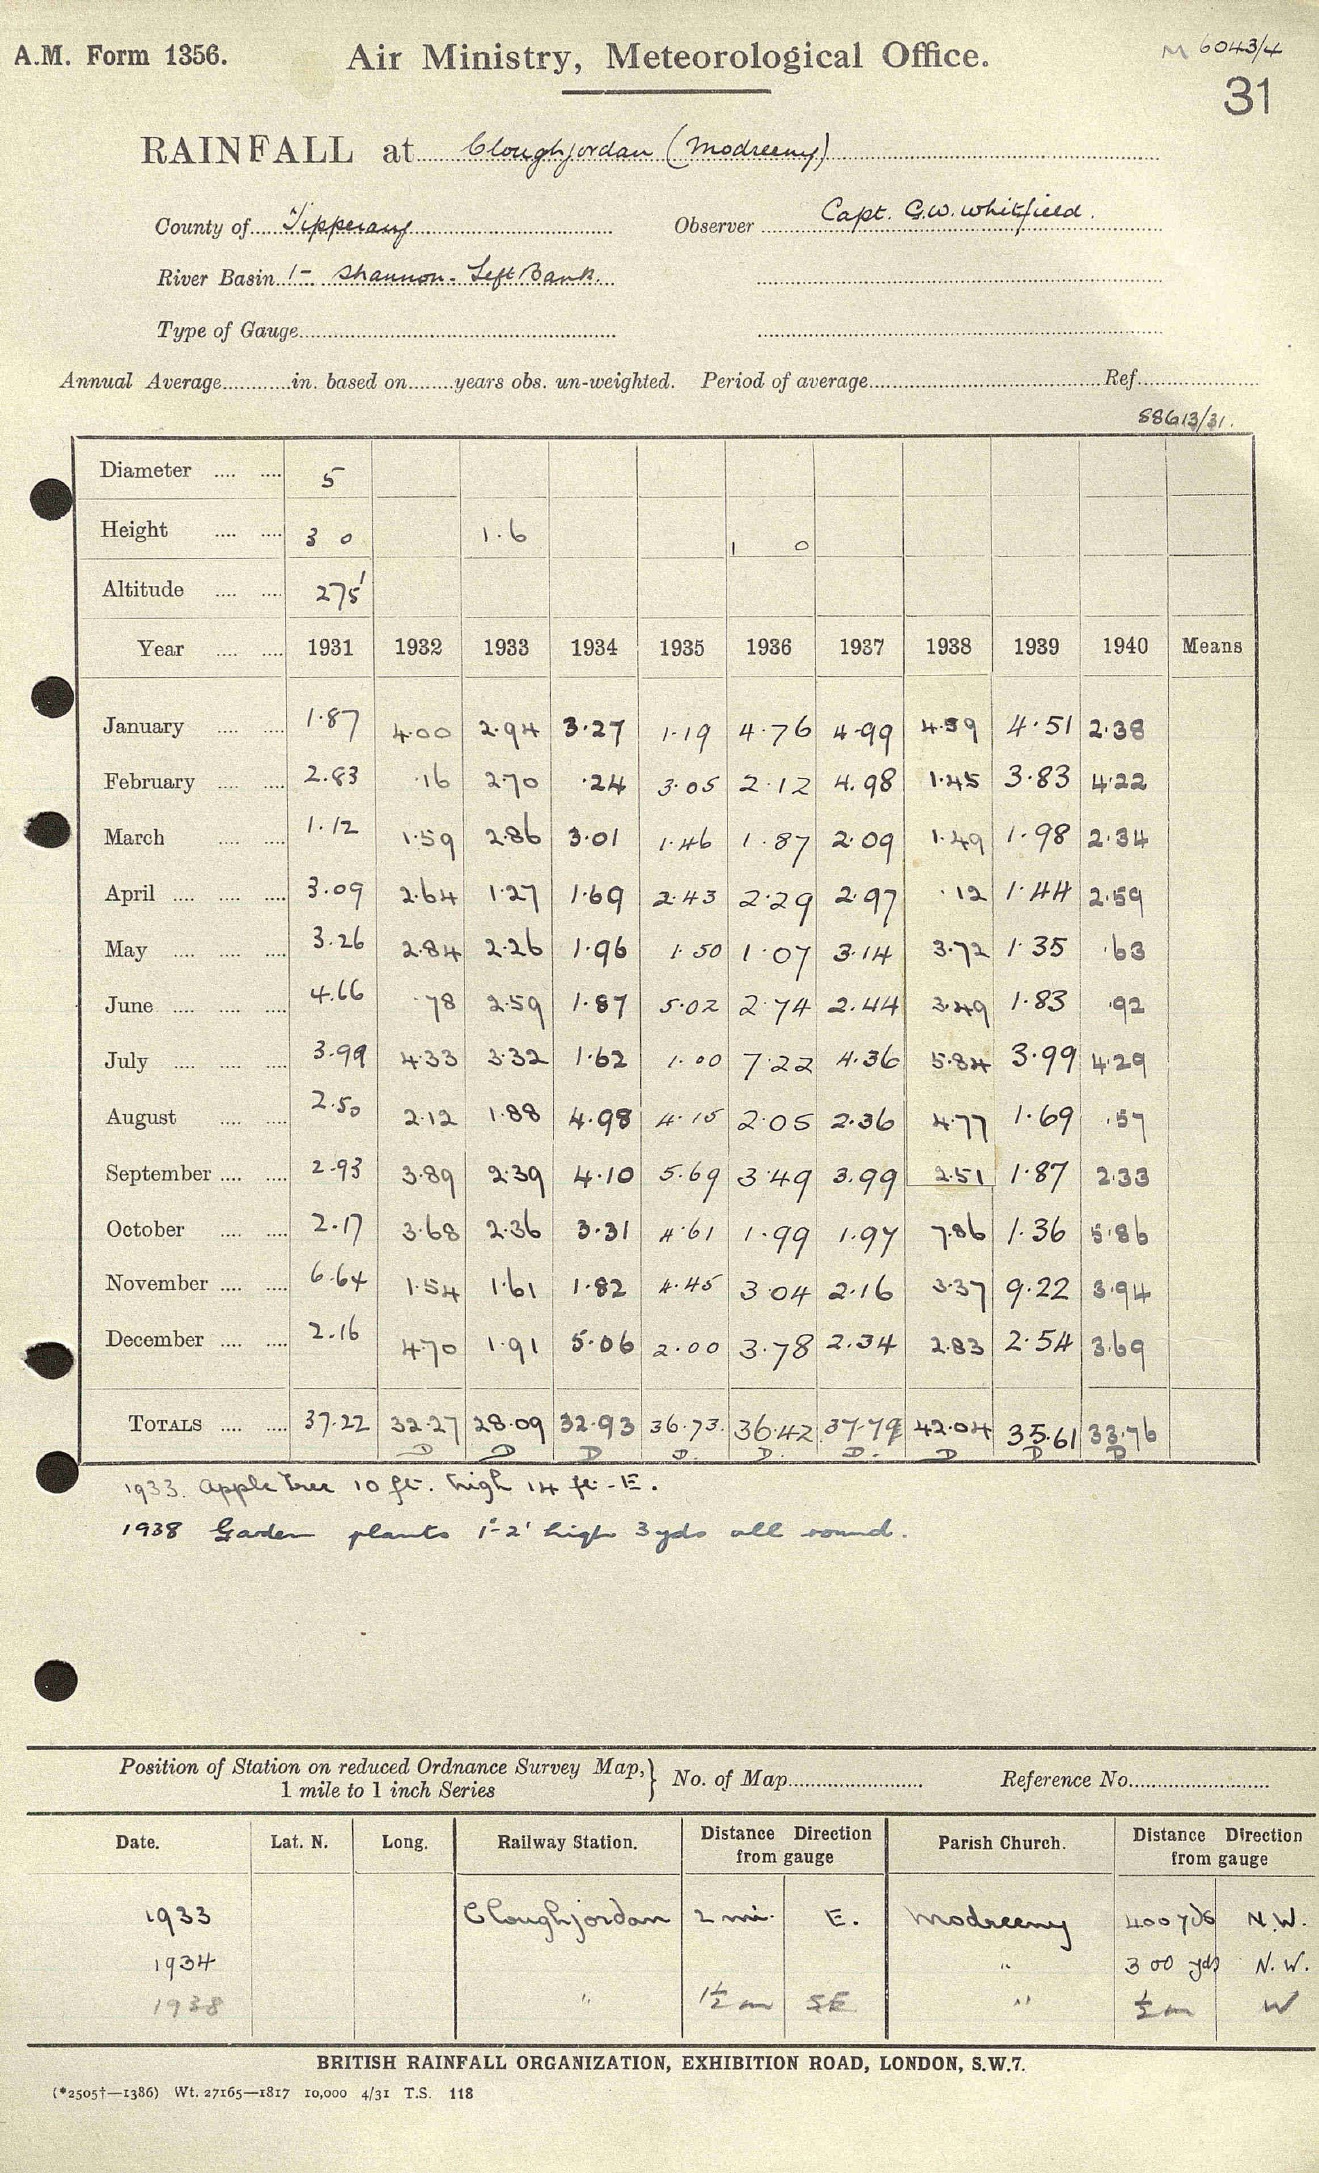 A.M. Form 1356.
Air Ministry, Meteorological Office.
M 6043/4
31
RAINFALL at Cloughjordan (Modreeny)
County of Tipperary Observer Capt. G.W. Whitfield.
River Basin 1- Shannon - Left Bank.
Type of Gauge
Annual Average in. based on years obs. un-weighted. Period of average Ref.
88613/31.
Diameter 5
Height 3 0 1.6 1 0
Altitude 275'
Year 1931 1932 1933 1934 1935 1936 1937 1938 1939 1940 Means
January 1.87 4.00 2.94 3.27 1.19 4.76 4.99 4.59 4.51 2.38
February 2.83 .16 2.70 .24 3.05 2.12 4.98 1.45 3.83 4.22
March 1.12 1.59 2.86 3.01 1.46 1.87 2.09 1.49 1.98 2.34
April 3.09 2.64 1.27 1.69 2.43 2.29 2.97 .12 1.44 2.59
May 3.26 2.84 2.26 1.96 1.50 1.07 3.14 3.72 1.35 .63
June 4.66 .78 2.59 1.87 5.02 2.74 2.44 3.49 1.83 .92
July 3.99 4.33 3.32 1.62 1.00 7.22 4.36 5.84 3.99 4.29
August 2.50 2.12 1.88 4.98 4.15 2.05 2.36 4.77 1.69 .57
September 2.93 3.89 2.39 4.10 5.69 3.49 3.99 2.51 1.87 2.33
October 2.17 3.68 2.36 3.31 4.61 1.99 1.97 7.86 1.36 5.86
November 6.64 1.54 1.61 1.82 4.45 3.04 2.16 3.37 9.22 3.94
December 2.16 4.70 1.91 5.06 2.00 3.78 2.34 2.83 2.54 3.69
TOTALS 37.22 32.27 28.09 32.93 36.73. 36.42 37.79 42.04 35.61 33.76
D D D D. D. D. D D D
1933. Apple Tree 10 ft. high 14 ft. E.
1938 Garden plants 1'-2' high 3 yds all round.
Position of Station on reduced Ordnance Survey Map,} No. of Map Reference No.
1 mile to 1 inch Series
Date. Lat. N. Long. Railway Station. Distance Direction from gauge Parish Church. Distance Direction from gauge
1933 Cloughjordan 2 mi. E. Modreeny 400 yds N.W.
1934 " 300 yds N.W.
1938 " 1½ m SE " ½ m W
BRITISH RAINFALL ORGANIZATION, EXHIBITION ROAD, LONDON, S.W.7.
(*2505†—1386) Wt. 27165—1817 10,000 4/31 T.S. 118